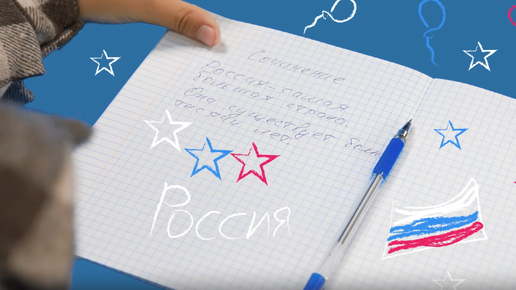 Сочинение
Россия - самая
большая страна.
Она существует
тысячи лет.
Россия